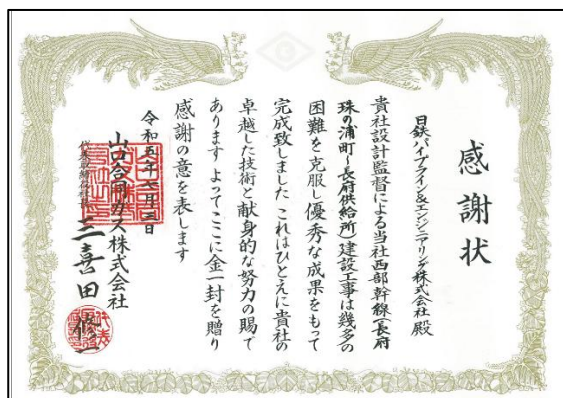 感謝状
日鉄パイプライン&エンジニアリング株式会社 殿
貴社設計監督による当社西部幹線(長府
珠の浦町～長府供給所)建設工事は幾多の
困難を克服し優秀な成果をもって
完成致しました これはひとえに貴社の
卓越した技術と献身的な努力の賜で
あります よってここに金一封を贈り
感謝の意を表します
令和五年七月三日
山口合同ガス株式会社
代表取締役社長 三喜田